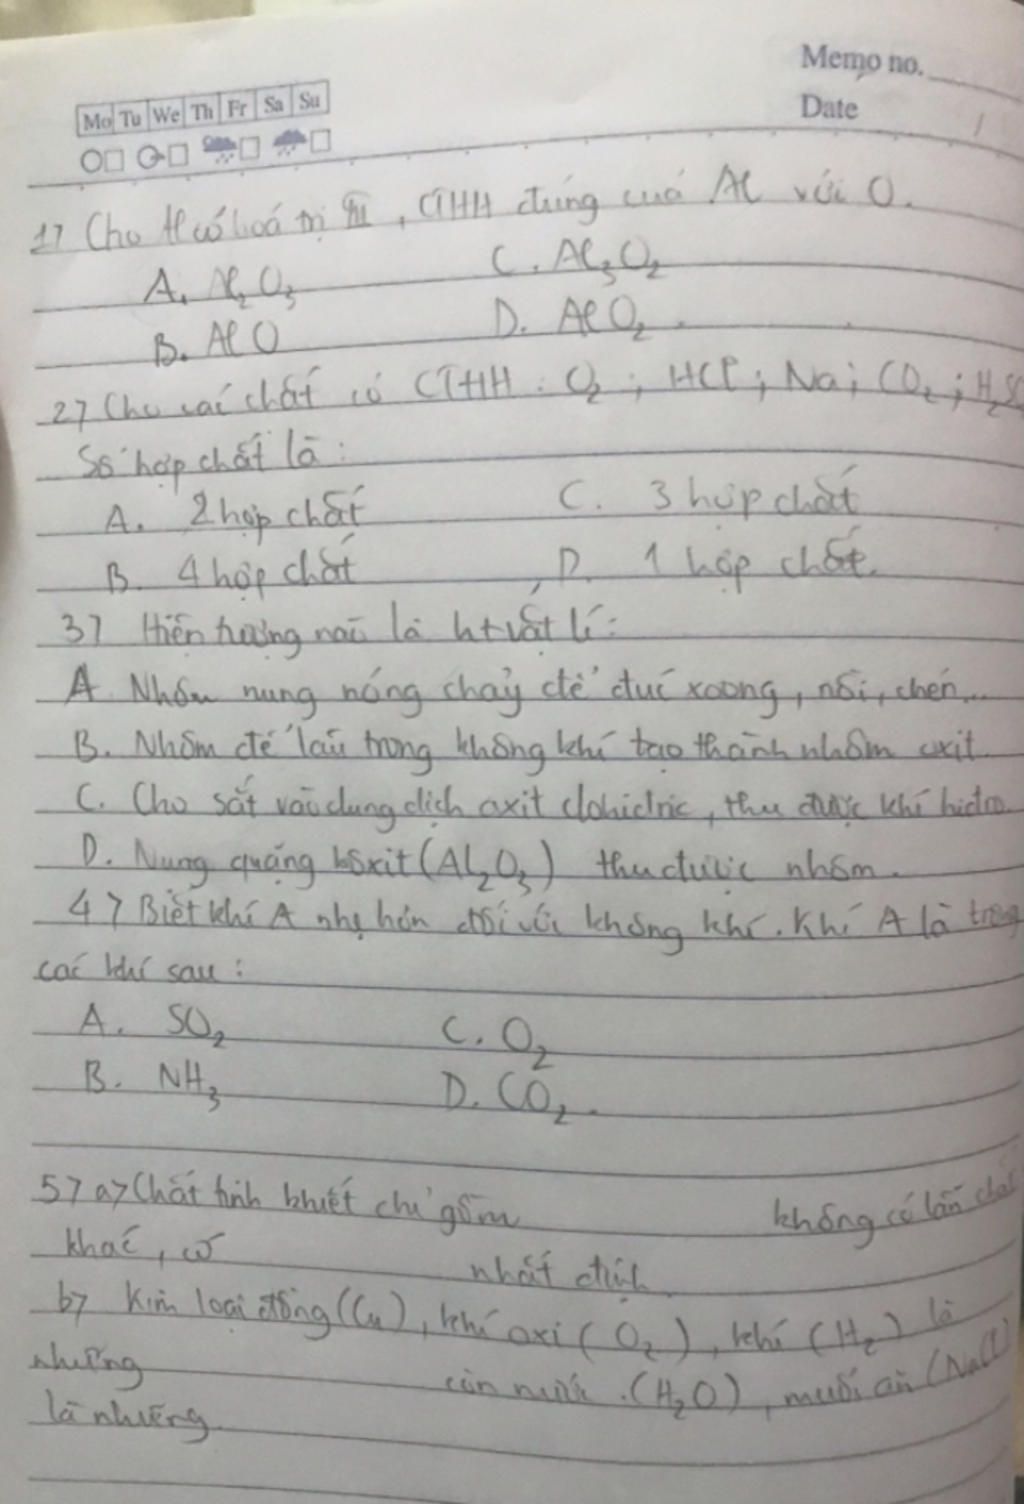 Memo no.
Mo Tu We Th Fr Sa Su
Date /
17 Cho Al có hoá trị III, CTHH đúng cuả Al với O.
A. Al₂O₃ C. Al₃O₂
B. AlO D. AlO₂.
27 Cho các chất có CTHH : O₂ ; HCl ; Na ; CO₂ ; H₂SO
Số hợp chất là :
A. 2 hợp chất C. 3 hợp chất
B. 4 hợp chất D. 1 hợp chất.
37 Hiện tượng naò là ht vật lí :
A. Nhôm nung nóng chaỷ để đuć xoong, nồi, chén...
B. Nhôm để lâu trong không khí tạo thành nhôm oxit
C. Cho sắt vaò dung dịch axit clohidric, thu được khí hidro
D. Nung quặng bôxit (Al₂O₃) thu được nhôm.
47 Biết khí A nhẹ hơn đối với không khí. Khí A là trong
các khí sau :
A. SO₂ C. O₂
B. NH₃ D. CO₂.
57 a7 Chất tinh khiết chỉ gồm không có lẫn chất
khác, có nhất định
b7 Kim loại đồng (Cu), khí oxi (O₂), khí (H₂) là
những còn nước (H₂O), muối ăn (NaCl)
là những